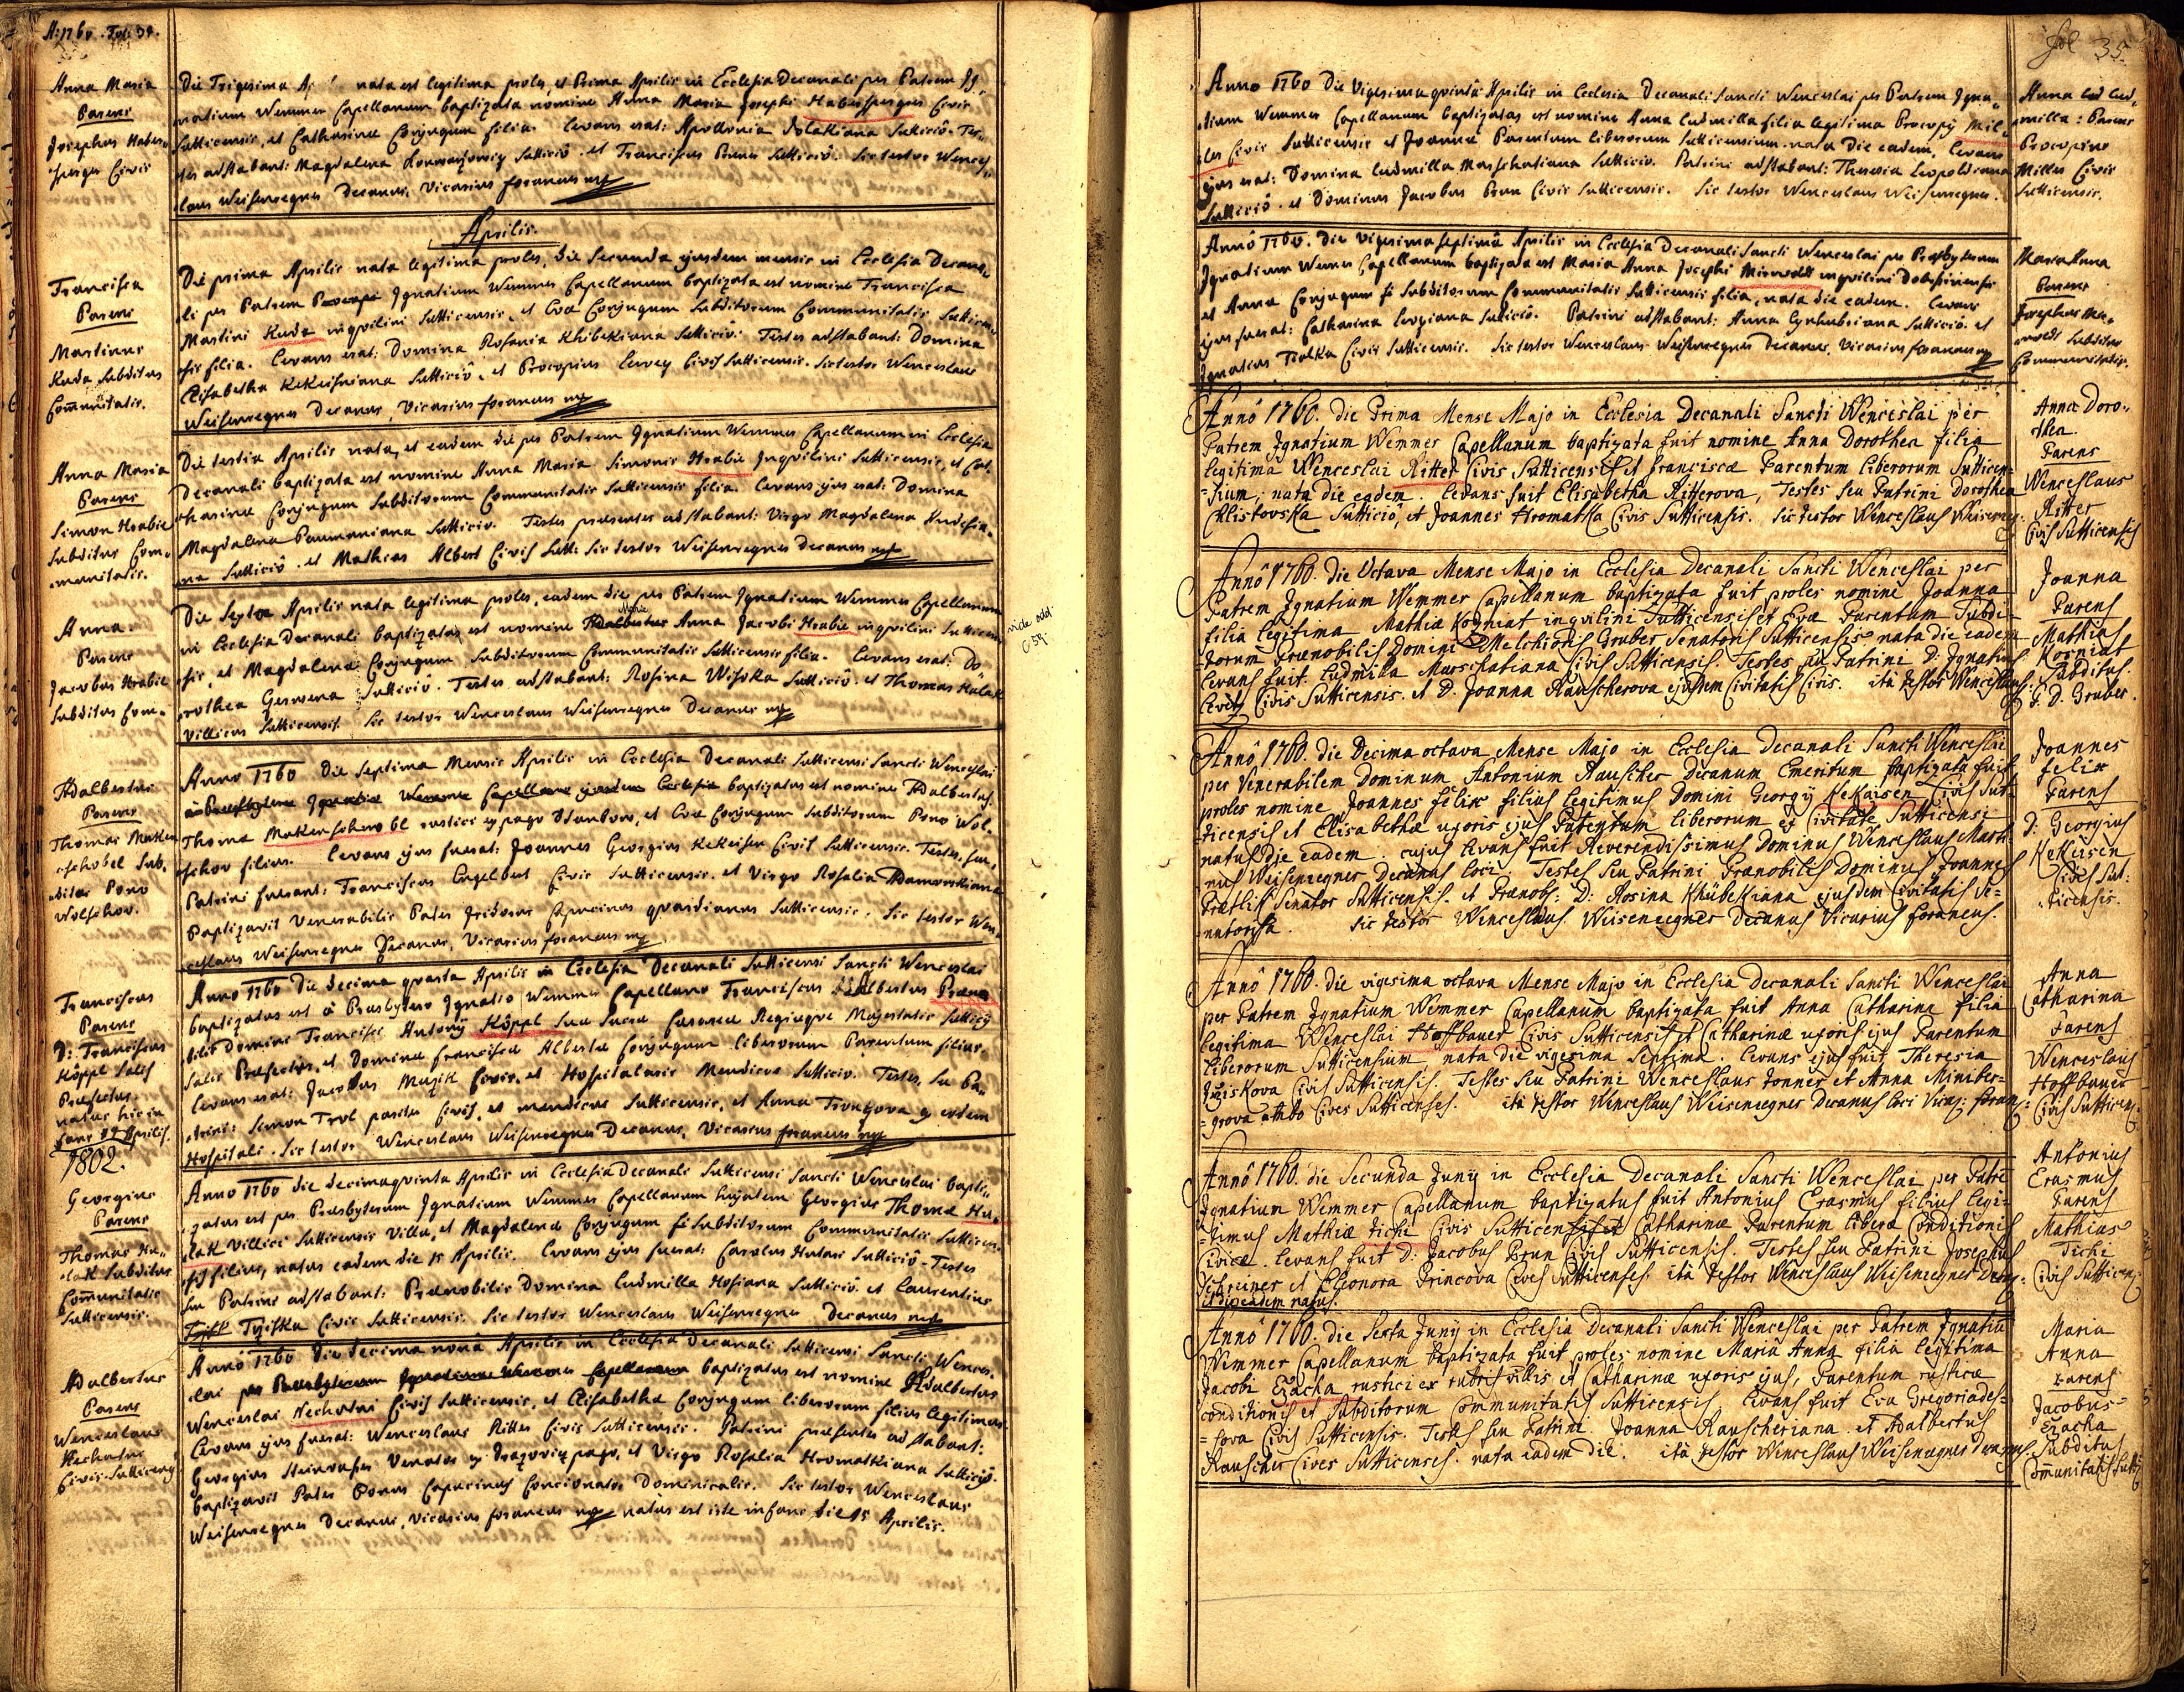 A: 1760. Fol: 34.
Anna Maria
Parens
Josephus Haber-
sperger Civis
Die Trigesima nata est legitima proles, et Prima Aprilis in Ecclesia Decanali per Patrem Ig-
natium Wemmer Capellanum baptizata nomine Anna Maria Josephi Habersperger Civis
Sutticensis, et Catharinæ Conjugum filia. Levans erat: Apollonia Suttició. Tes-
tes adstabant: Magdalena Suttició. et Franciscus Suttició. Sic testor Wences-
laus Weisenregner Decanus, Vicarius foraneus mp
Aprilis.
Francisca
Parens
Martinus
Kuda Subditus
Com̄unitatis.
Die prima Aprilis nata legitima proles, die Secunda ejusdem mensis in Ecclesia Decana-
li per Patrem Ignatium Wemmer Capellanum baptizata est nomine Francisca
Martini Kuda inqvilini Sutticensis, et Evæ Conjugum Subditorum Communitatis Sutticen-
sis filia. Levans erat: Domina Rosaria Khibekiana Suttició. Testes adstabant: Domina
Elisabetha Kekeisniana Suttició, et Procopius Levey Civis Sutticensis. Sic testor Wenceslaus
Weisenregner Decanus, Vicarius foraneus mp
Anna Maria
Parens
Simon Hrabie
Subditus Com-
munitatis.
Die tertia Aprilis nata, et eadem die per Patrem Ignatium Wemmer Capellanum in Ecclesia
Decanali baptizata est nomine Anna Maria Simonis Hrabie Inqvilini Sutticensis, et Cat-
harinæ Conjugum Subditorum Communitatis Sutticensis filia. Levans ejus erat: Domina
Magdalena Paumaniana Suttició. Testes præsentes adstabant: Virgo Magdalena
na Suttició. et Mathias Albert Civis Sutt: Sic testor Weisenregner Decanus mp
Anna.
Parens
Jacobus Hrabie
Subditus Com-
Die Sexta Aprilis nata legitima proles, eadem die per Patrem Ignatium Wemmer Capellanum
Maria
in Ecclesia Decanali baptizatas est nomine Adalbertus Anna Jacobi Hrabie inqvilini Sutticen-
sis, et Magdalenæ Conjugum Subditorum Communitatis Sutticensis filia. Levans erat: Do-
rothea Suttició. Testes adstabant: Rosina Wisoka Suttició. et Thomas Hulak
Villicus Sutticensis. Sic testor Wenceslaus Weisenregner Decanus mp
vide add:
Adalbertus
Parens
Thomas Maken-
schobel Sub-
ditus Pono
Wolschov.
Anno 1760 die Septima Mensis Aprilis in Ecclesia Decanali Sutticensi Sancti Wenceslai
à Presbytero Ignatio Wemmer Capellano ejusdem Ecclesiæ baptizatus est nomine Adalbertus
Thoma Makenschowobl rustici ex pago et Evæ Conjugum Subditorum Pono Wol-
schov filius. Levans ejus fuerat: Joannes Georgius Kekeisen Civis Sutticensis. Testes, seu
Patrini fuerant: Franciscus Engelbert Civis Sutticensis. et Virgo Rosalia Adamowskiana
Baptizavit Venerabilis Pater Isidorus Capucinus qvardianus Sutticensis. Sic testor Wen-
ceslaus Weisenregner Decanus, Vicarius foraneus mp
Franciscus
Parens
D: Franciscus
Köppl Salis
Præfectus
natus hic in
1802.
Anno 1760 die decima qvarta Aprilis in Ecclesia Decanali Sutticensi Sancti Wenceslai
baptizatus est à Presbytero Ignatio Wemmer Capellano Franciscus Albertus Præno-
bilis Domini Francisci Antonij Köppl Suæ Sacræ Cæsareæ Regiæqve Majestatis Sutticij
Salis Præfectus, et Dominæ Franciscæ Albertæ Conjugum liberorum Parentum filius.
Levans erat: Jacobus Muzik Civis, et Hospitalaris Mendicus Suttició. Testes, seu Pa-
trini: Simon Civis, et mendicus Sutticensis, et Anna ex eodem
Hospitali. Sic testor Wenceslaus Weisenregner Decanus, Vicarius foraneus mp
Georgius
Parens
Thomas Hu-
lak Subditus
Com̄unitatis
Sutticensis.
Anno 1760 die decimaqvinta Aprilis in Ecclesia Decanali Sutticensi Sancti Wenceslai bapti-
zatus est per Presbyterum Ignatium Wemmer Capellanum hujatem Georgius Thomæ Hu-
lak Villici Sutticensis Villæ, et Magdalenæ Conjugum Subditorum Communitatis Sutticen-
sis filius, natus eadem die 15 Aprilis. Levans ejus fuerat: Carolus Suttició. Testes
seu Patrini adstabant: Prænobilis Domina Ludmilla Suttició. et Laurentius
Civis Sutticensis. Sic testor Wenceslaus Weisenregner Decanus mp
Adalbertus
Parens
Wenceslaus
Nechutni
Civis Sutticensis
Anno 1760 die decima nona Aprilis in Ecclesia Decanali Sutticensi Sancti Wences-
lai per Presbyterum Ignatium Wemmer Capellanum baptizatus est nomine Adalbertus
Wenceslai Nechutni Civis Sutticensis, et Elisabethæ Conjugum liberorum filius legitimus
Levans ejus fuerat: Wenceslaus Ritter Civis Sutticensis. Patrini præsentes adstabant:
Georgius Venator ex pago, et Virgo Rosalia Hromatkiana Suttició.
Baptizavit Pater Capucinus Concionator Dominicalis. Sic testor Wenceslaus
Weisenregner Decanus, Vicarius foraneus mp natus est iste infans die 15 Aprilis.
fol 35.
Anno 1760 die Vigesima qvinta Aprilis in Ecclesia Decanali Sancti Wenceslai per Patrem Igna-
tium Wemmer Capellanum baptizatas est nomine Anna Ludmilla filia legitima Procopij Mil-
ler Civis Sutticensis et Joannæ Parentum liberorum Sutticensium. nata die eadem. Levans
ejus erat: Domina Ludmilla Marschatiana Suttició. Patrini adstabant: Theresia Leopoldiana
Suttició. et Dominus Jacobus Brun Civis Sutticensis. Sic testor Wenceslaus Weisenregner.
Anna Lud-
milla: Parens
Procopius
Miller Civis
Sutticensis.
Anno 1760. die Vigesima Septima Aprilis in Ecclesia Decanali Sancti Wenceslai per Presbyterum
Ignatium Wemer Capellanum baptizata est Maria Anna Josephi inqvilini
et Anna Conjugum Subditorum Communitatis Sutticensis filia, nata die eadem. Levans
ejus fuerat: Catharina Suttició. Patrini adstabant: Anna Suttició. et
Ignatius Civis Sutticensis. Sic testor Wenceslaus Weisenregner Decanus, Vicarius foraneus mp
Maria Anna
Parens
Josephus
Subditus
Communitatis.
Annô 1760. die Prima Mense Majo in Ecclesia Decanali Sancti Wenceslai per
Patrem Ignatium Wemmer Capellanum baptizata fuit nomine Anna Dorothea filia
legitima Wenceslai Ritter Civis Sutticensis et Franciscæ Parentum liberorum Sutticen-
=sium, nata die eadem. Levans fuit Elisabetha Ritterova, Testes seu Patrini Dorothea
Chlistovska Suttició, et Joannes Hromatka Civis Sutticensis. Sic testor Wenceslaus Weisenreg:
Anna Doro-
thea
Parens
Wenceslaus
Ritter
Civis Sutticensis
Annô 1760. die Octava Mense Majo in Ecclesia Decanali Sancti Wenceslai per
Patrem Ignatium Wemmer Capellanum baptizata fuit proles nomine Joanna
filia legitima Mathiæ Korniat inqvilini Sutticensis et Evæ Parentum Subdi-
torum Prænobilis Domini Melchioris Gruber Senatoris Sutticensis nata die eadem
Levans fuit Ludmilla Marschatiana Civis Sutticensis. Testes seu Patrini D. Ignatius
Civis Sutticensis. et D. Joanna Rauscherova ejusdem Civitatis Civis. ità testor Wenceslaus
Joanna
Parens
Mathias
Korniat
Subditus
G. D. Gruber.
Annô 1760. die Decima octava Mense Majo in Ecclesia Decanali Sancti Wenceslai
per Venerabilem Dominum Antonium Rauscher Decanum Emeritum baptizata fuit
proles nomine Joannes felix filius legitimus Domini Georgij Kekeisen Civis Sut-
ticensis et Elisabethæ uxoris ejus Parentum liberorum ex Civitate Sutticensi
natus die eadem cujus Levans fuit Reverendissimus Dominus Wenceslaus Marti-
nus Weisenregner Decanus loci. Testes seu Patrini Prænobilis Dominus Joannes
Senator Sutticensis. et Prænob: D: Rosina Khübekiana ejusdem Civitatis Se-
natorissa. Sic testor Wenceslaus Weisenregner Decanus Vicarius foraneus.
Joannes
felix
Parens
D: Georgius
Kekeisen
Civis Sut-
ticensis.
Annô 1760. die vigesima octava Mense Majo in Ecclesia Decanali Sancti Wenceslai
per Patrem Ignatium Wemmer Capellanum baptizata fuit Anna Catharina filia
legitima Wenceslai Hoffbauer Civis Sutticensis et Catharinæ uxoris ejus Parentum
liberorum Sutticensium nata die vigesima Septima. Levans ejus fuit Theresia
Civis Sutticensis. Testes seu Patrini Wenceslaus Donner et Anna Miniber-
=grova ambo Cives Sutticenses. ità testor Wenceslaus Weisenregner Decanus loci Vicar: foran:
Anna
Catharina
Parens
Wenceslaus
Hoffbauer
Civis Sutticens:
Annô 1760. die Secunda Junij in Ecclesia Decanali Sancti Wenceslai per Patrē
Ignatium Wemmer Capellanum baptizatus fuit Antonius Erasmus filius legi-
timus Mathiæ Tichi Civis Sutticensis et Catharinæ Parentum liberæ Conditionis
Civicæ. Levans fuit D: Jacobus Brun Civis Sutticensis. Testes seu Patrini Josephus
Schreiner et Eleonora Princova Cives Sutticenses. ità testor Wenceslaus Weisenregner Decan:
et die eadem natus.
Antonius
Erasmus
Parens
Mathias
Tichi
Civis Sutticens:
Annô 1760. die Sexta Junij in Ecclesia Decanali Sancti Wenceslai per Patrem Ignatiū
Wemmer Capellanum baptizata fuit proles nomine Maria Anna filia legitima
Jacobi Ezacha rustici ex villis et Catharinæ uxoris ejus, Parentum rusticæ
conditionis et Subditorum Communitatis Sutticensis. Levans fuit Eva Gregoriades-
=sova Civis Sutticensis. Testes seu Patrini Joanna Rauscheriana et Adalbertus
Rauscher Cives Sutticenses. nata eadem die. ità testor Wenceslaus Weisenregner Decanus
Maria
Anna
Parens
Jacobus
Ezacha
Subditus
Com̄unitatis Sutti: